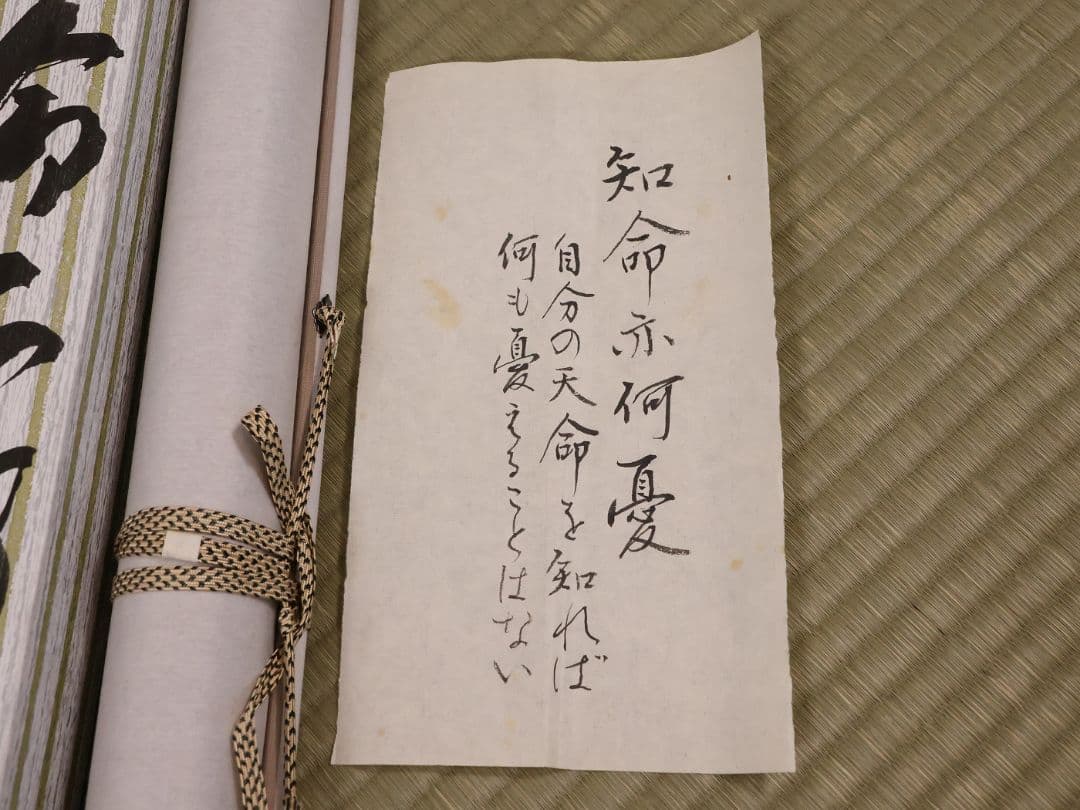 知命亦何憂
自分の天命を知れば
何も憂えることはない